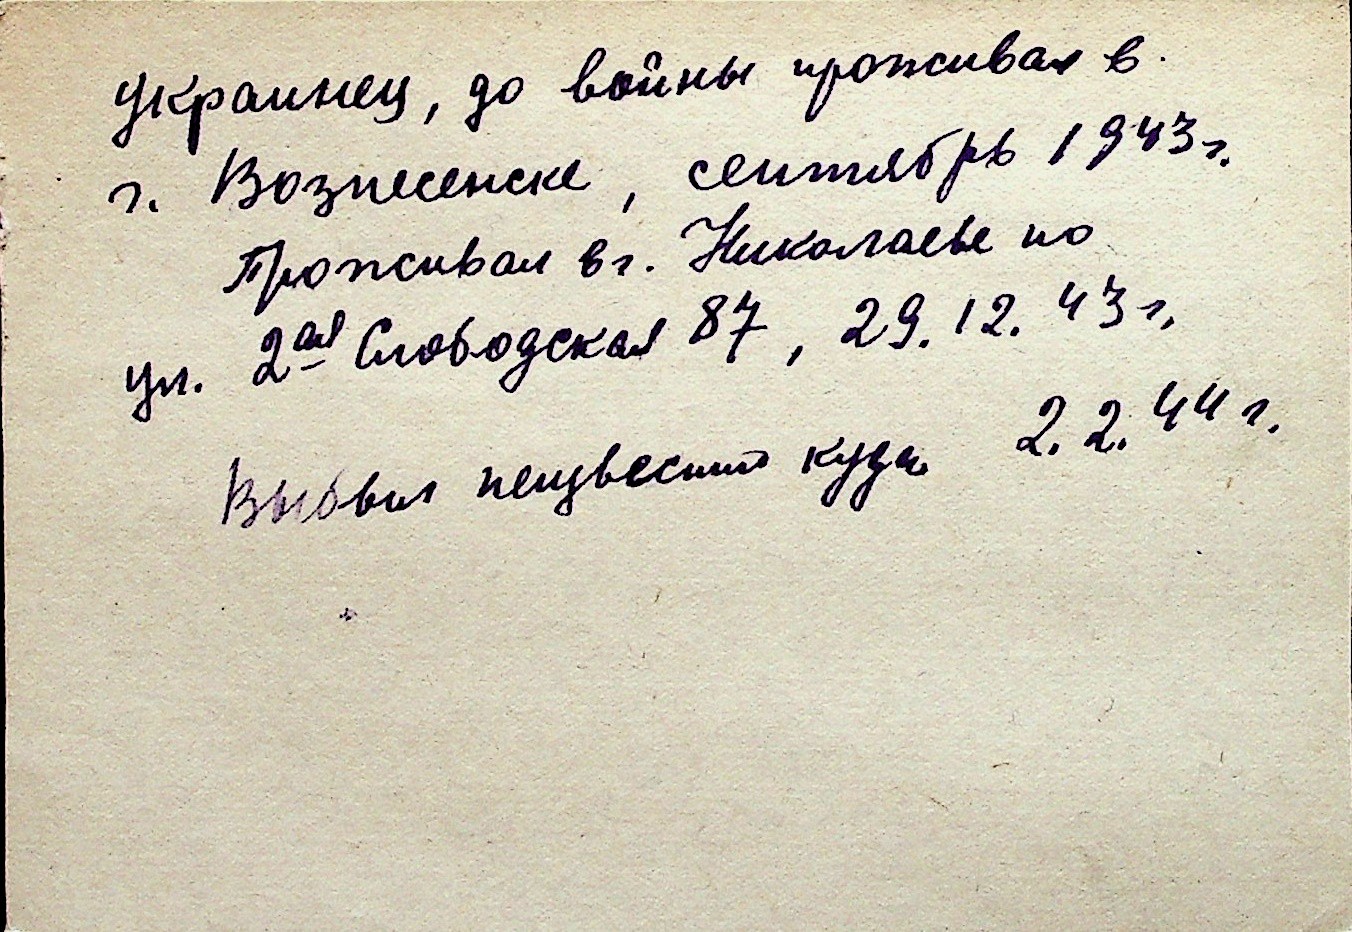 украинец, до войны проживал в
г. Вознесенске, сентябрь 1943 г.
Проживал в г. Николаеве по
ул. 2ая Слободская 87, 29.12.43 г.
Выбыл неизвестно куда 2.2.44 г.